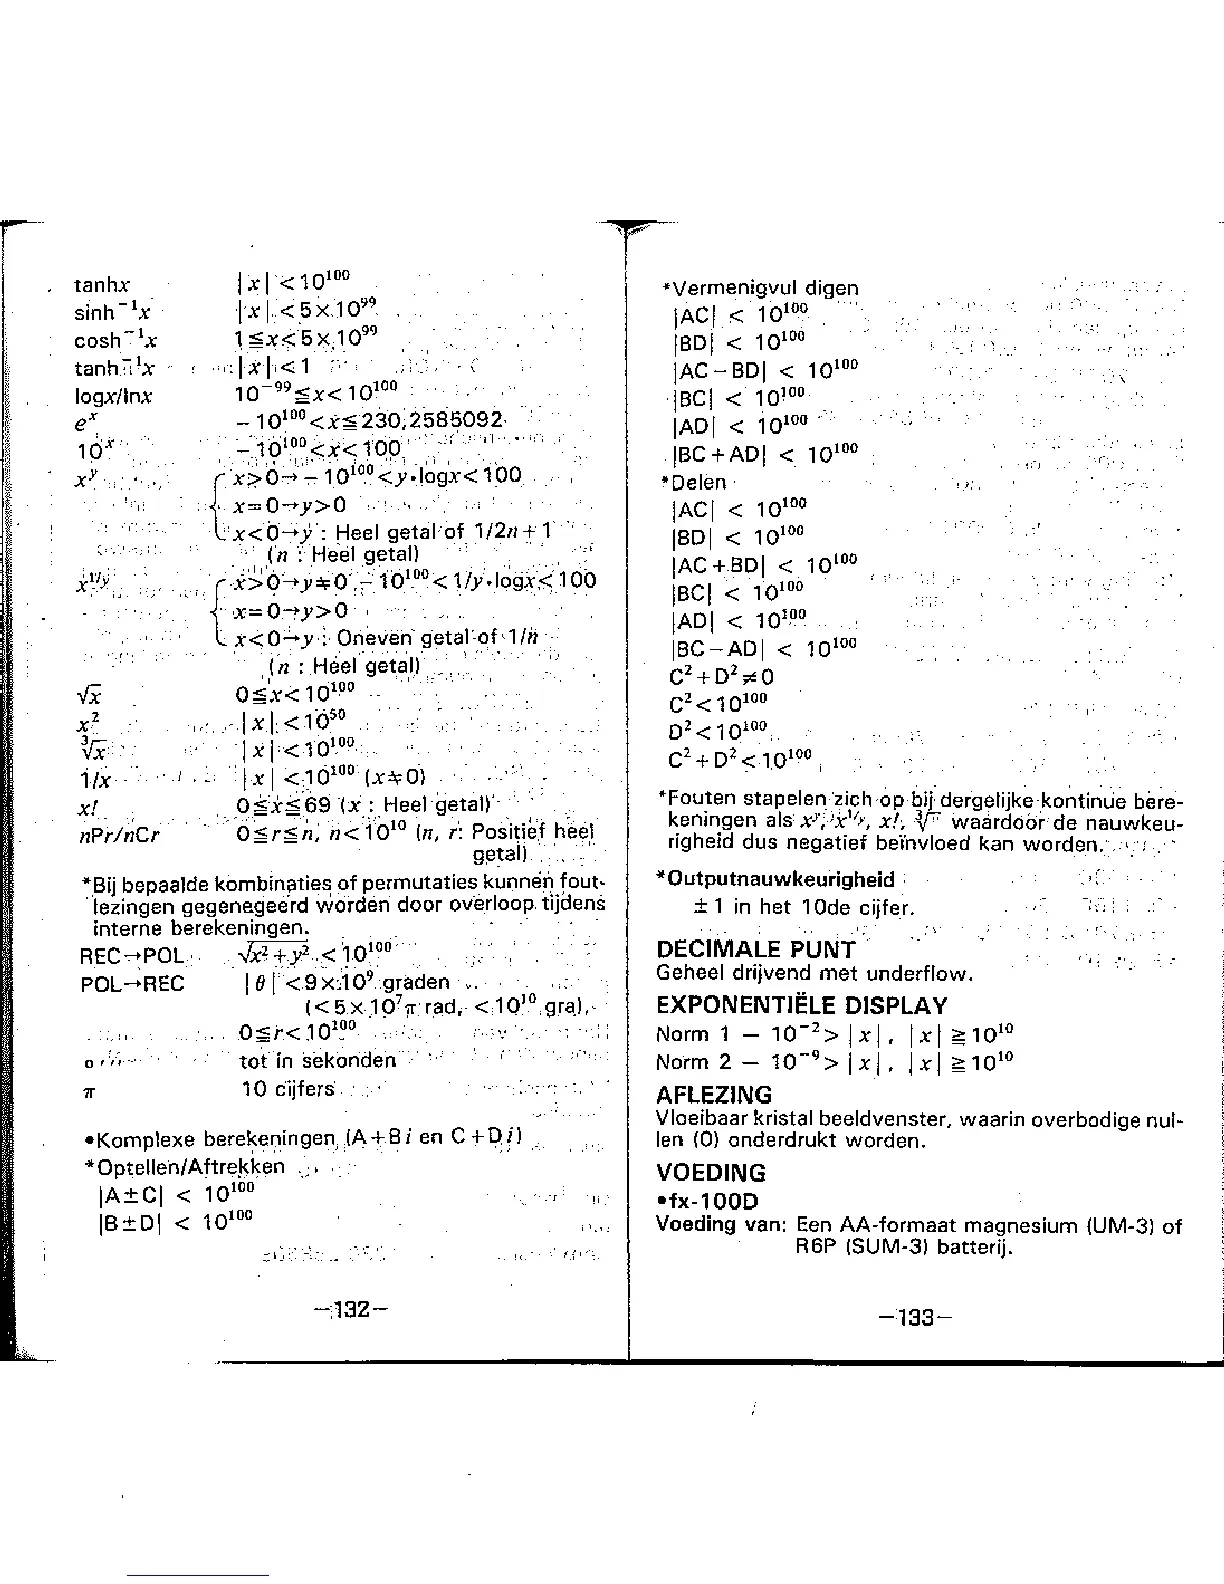 tanhx |x|<10¹⁰⁰
sinh⁻¹x |x|<5×10⁹⁹
cosh⁻¹x 1≦x<5×10⁹⁹
tanh⁻¹x |x|<1
logx/lnx 10⁻⁹⁹≦x<10¹⁰⁰
eˣ −10¹⁰⁰<x≦230,2585092
10ˣ −10¹⁰⁰<x<100
xʸ x>0→−10¹⁰⁰<y•logx<100
x=0→y>0
x<0→y : Heel getal of 1/2n+1
(n : Heel getal)
x¹/ʸ x>0→y≠0 −10¹⁰⁰<1/y•logx<100
x=0→y>0
x<0→y : Oneven getal of 1/n
(n : Heel getal)
√x 0≦x<10¹⁰⁰
x² |x|<10⁵⁰
³√x |x|<10¹⁰⁰
1/x |x|<10¹⁰⁰ (x≠0)
x! 0≦x≦69 (x : Heel getal)
nPr/nCr 0≦r≦n, n<10¹⁰ (n, r: Positief heel
getal)
*Bij bepaalde kombinaties of permutaties kunnen fout-
lezingen gegenegeerd worden door overloop tijdens
interne berekeningen.
REC→POL √x²+y² <10¹⁰⁰
POL→REC |θ|<9×10⁹ graden
(<5×10⁷π rad, <10¹⁰ gra),
0≦r<10¹⁰⁰
o , ,, tot in sekonden
π 10 cijfers
•Komplexe berekeningen (A+Bi en C+Di)
*Optellen/Aftrekken
|A±C| < 10¹⁰⁰
|B±D| < 10¹⁰⁰
−132−
*Vermenigvul digen
|AC| < 10¹⁰⁰
|BD| < 10¹⁰⁰
|AC−BD| < 10¹⁰⁰
|BC| < 10¹⁰⁰
|AD| < 10¹⁰⁰
|BC+AD| < 10¹⁰⁰
*Delen
|AC| < 10¹⁰⁰
|BD| < 10¹⁰⁰
|AC+BD| < 10¹⁰⁰
|BC| < 10¹⁰⁰
|AD| < 10¹⁰⁰
|BC−AD| < 10¹⁰⁰
C²+D²≠0
C²<10¹⁰⁰
D²<10¹⁰⁰
C²+D²<10¹⁰⁰
*Fouten stapelen zich op bij dergelijke kontinue bere-
keningen als xʸ, x¹/ʸ, x!, ³√ waardoor de nauwkeu-
righeid dus negatief beïnvloed kan worden.
*Outputnauwkeurigheid
±1 in het 10de cijfer.
DECIMALE PUNT
Geheel drijvend met underflow.
EXPONENTIËLE DISPLAY
Norm 1 − 10⁻²>|x|, |x|≧10¹⁰
Norm 2 − 10⁻⁹>|x|, |x|≧10¹⁰
AFLEZING
Vloeibaar kristal beeldvenster, waarin overbodige nul-
len (0) onderdrukt worden.
VOEDING
•fx-100D
Voeding van: Een AA-formaat magnesium (UM-3) of
R6P (SUM-3) batterij.
−133−